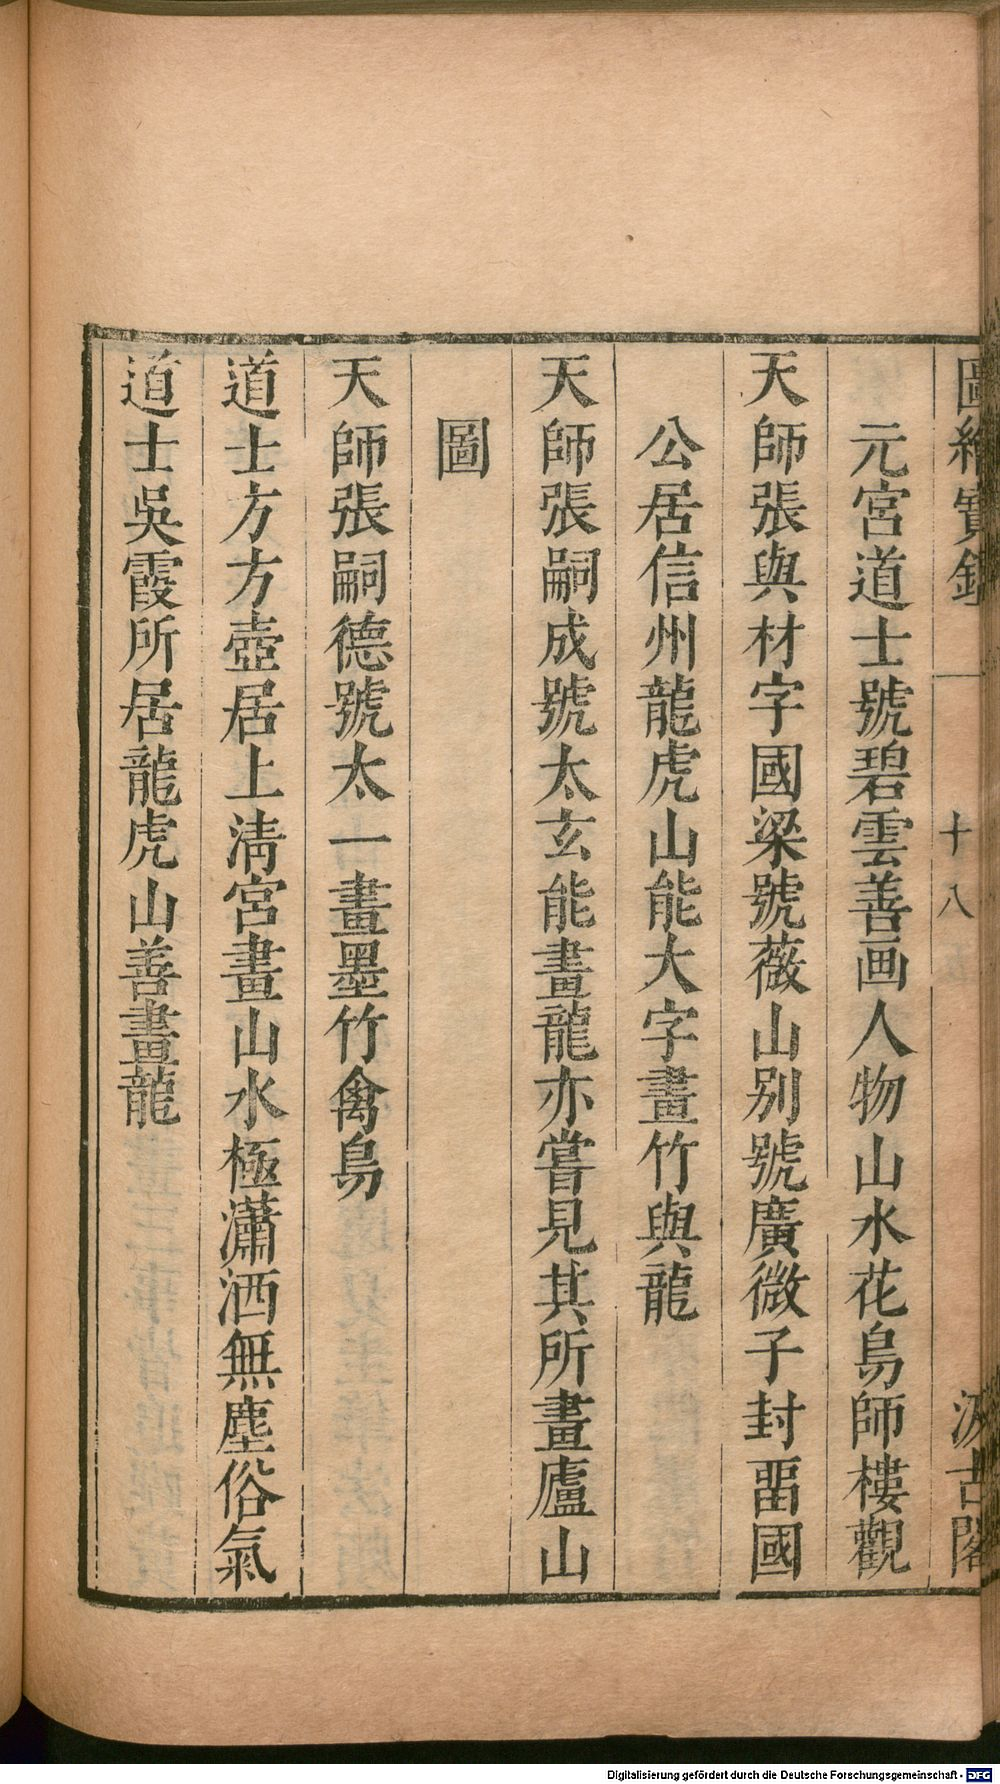 圖繪寶鑑 十八 汲古閣
元宮道士號碧雲善画人物山水花鳥師樓觀
天師張與材字國梁號薇山别號廣微子封畱國
公居信州龍虎山能大字畫竹與龍
天師張嗣成號太玄能畫龍亦嘗見其所畫廬山
圖
天師張嗣德號太一畫墨竹禽鳥
道士方方壺居上淸宮畫山水極瀟洒無塵俗氣
道士吳霞所居龍虎山善畫龍
Digitalisierung gefördert durch die Deutsche Forschungsgemeinschaft - DFG